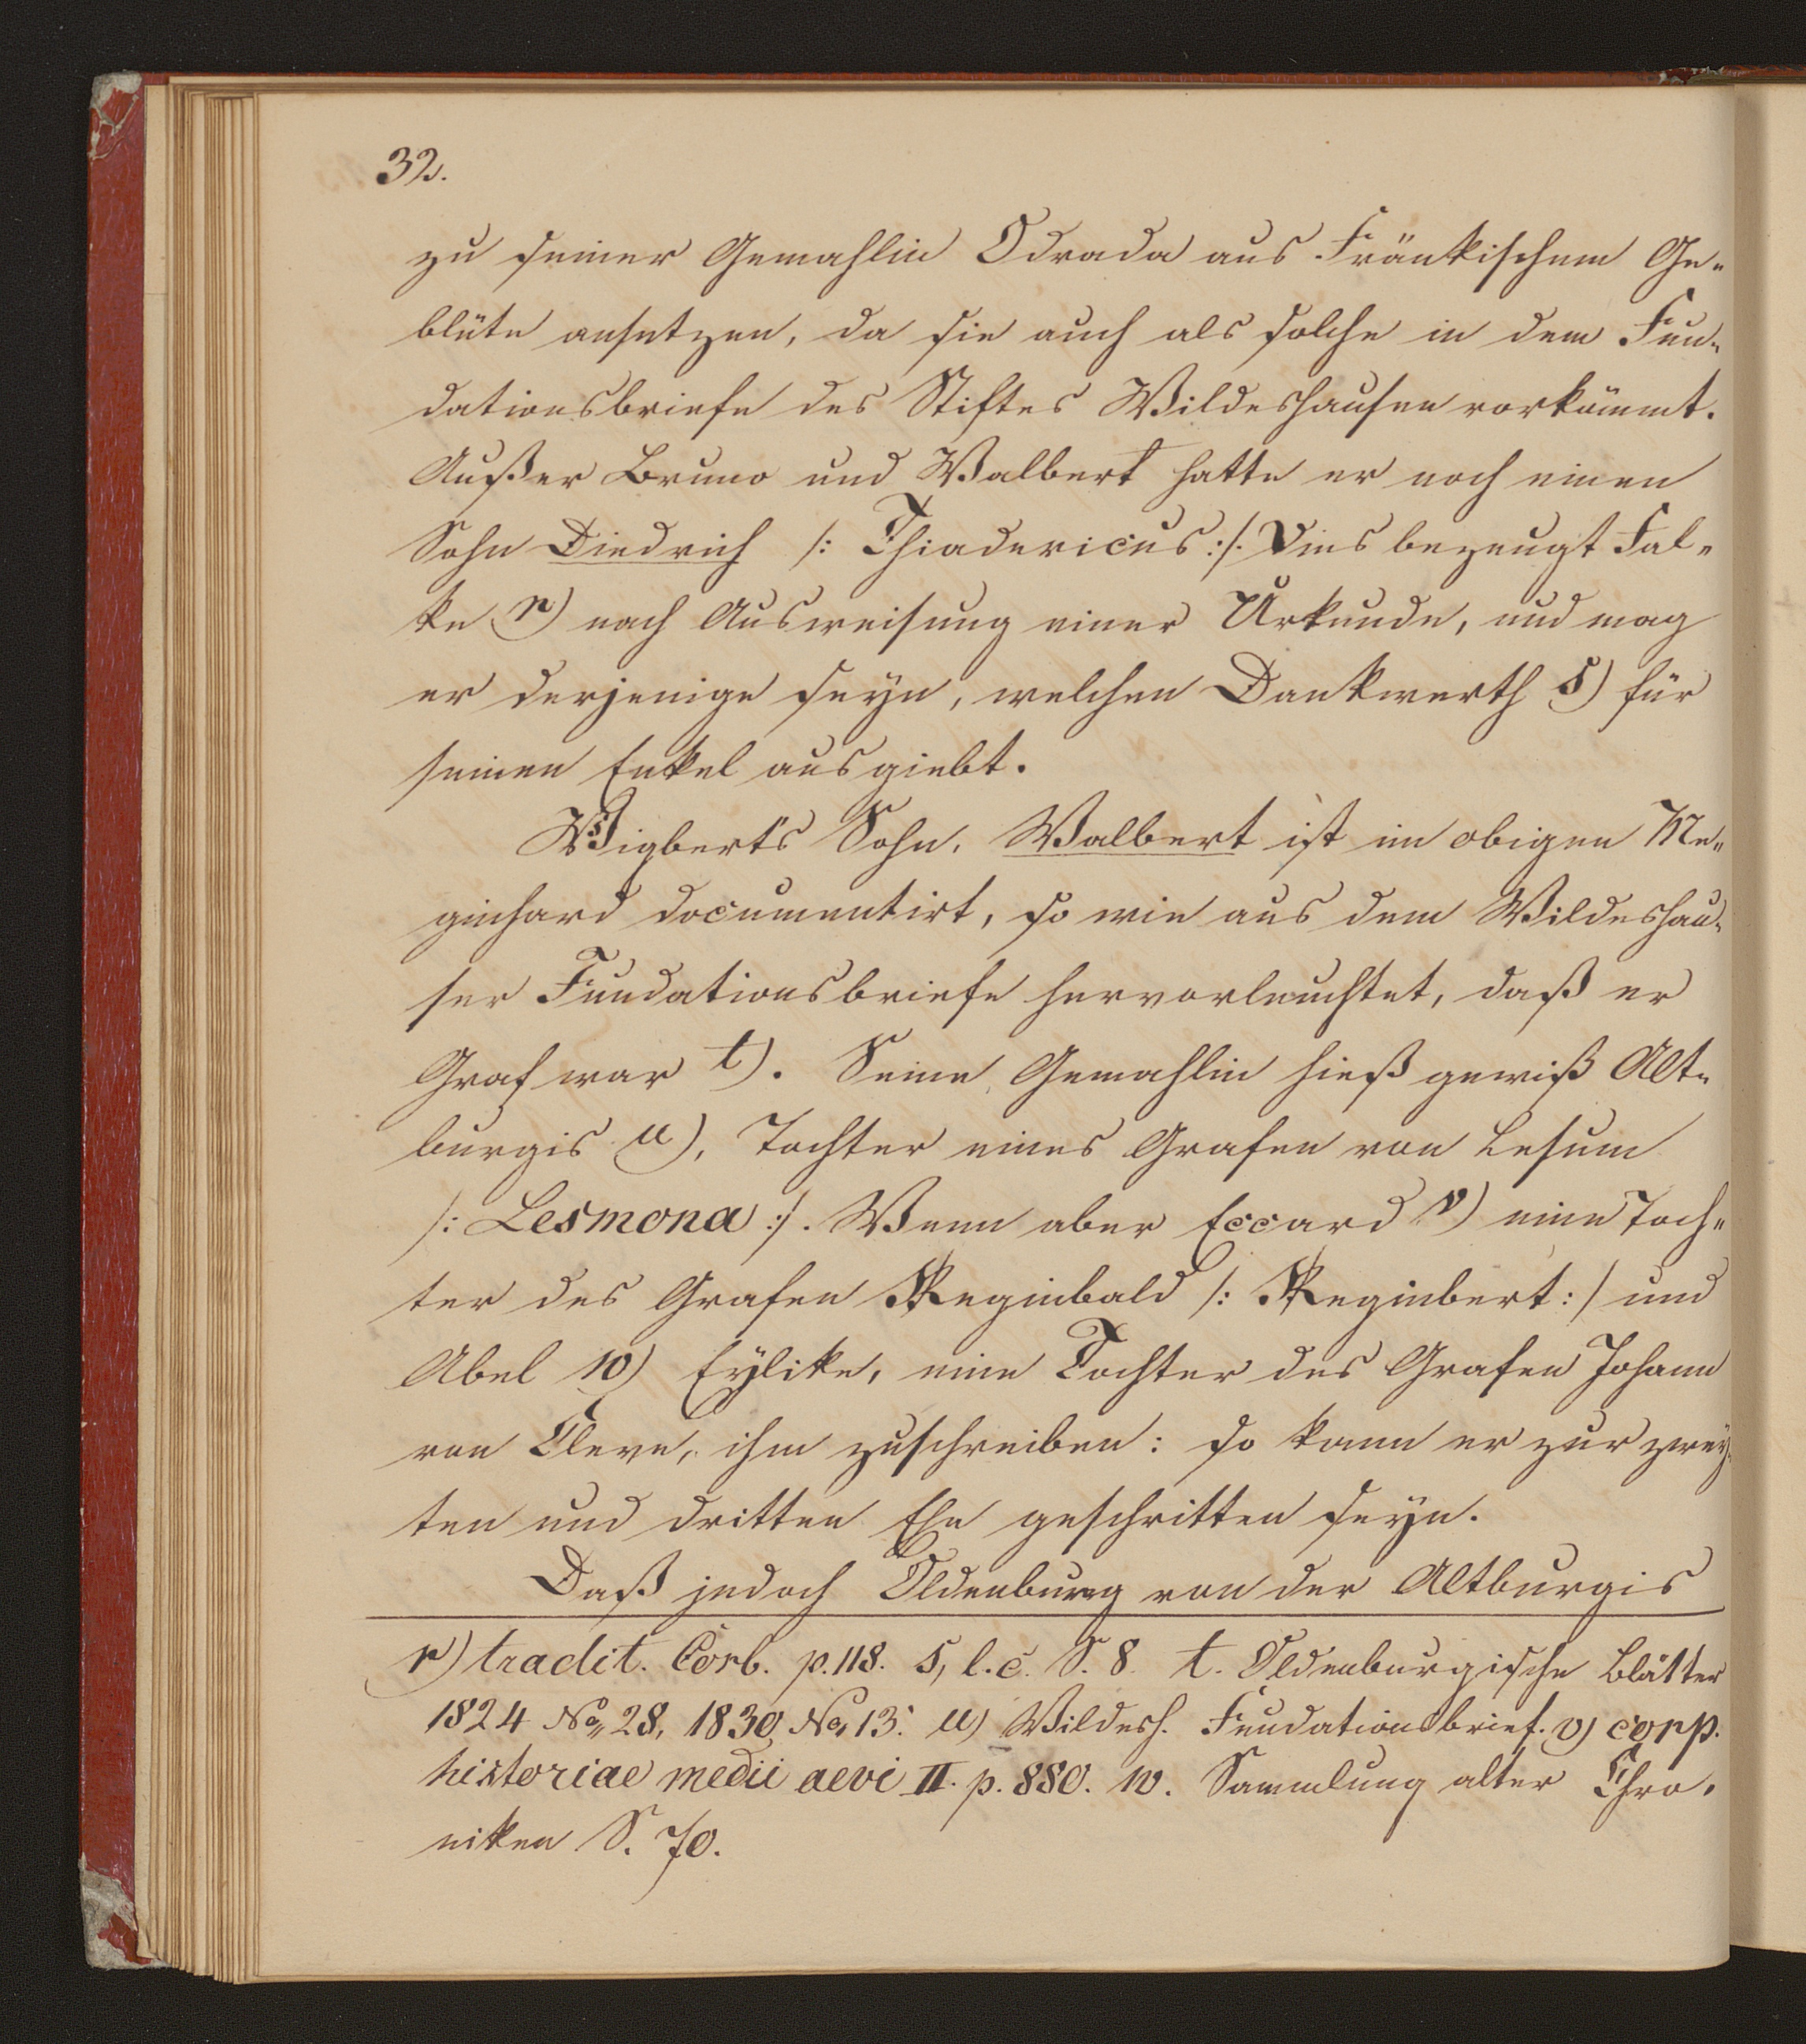 32.
zu seiner Gemahlin Odrada aus Fränkischem Ge-
blüte ansetzen, da sie auch als solche in dem Fun-
dationsbriefe des Stiftes Wildeshausen vorkömmt.
Außer Bruno und Walbert hatte er noch einen
Sohn Diedrich /: Thiadericus :/. Dies bezeugt Fal-
ke r) nach Ausweisung einer Urkunde, und mag
er derjenige seyn, welchen Dankwerth s) für
seinen Enkel ausgiebt.
Wigbert's Sohn, Walbert ist im obigen Me-
ginhard documentirt, so wie aus dem Wildeshau-
ser Fundationsbriefe hervorleuchtet, daß er
Graf war t). Seine Gemahlin hieß gewiß Alt-
burgis u), Tochter eines Grafen von Lesum
/: Lesmona :/. Wenn aber Eccard v) eine Toch-
ter des Grafen Reginbald /: Reginbert :/ und
Abel w) Eylike, eine Tochter des Grafen Johann
von Cleve, ihm zuschreiben: so kann er zur zwey-
ten und dritten Ehe geschritten seyn.
Daß jedoch Oldenburg von der Altburgis
r) tradit. Corb. p. 118. s, l. c. S. 8. t. Oldenburgische Blätter
1824 No, 28, 1830, No, 13. u) Wildesh. Fundationsbrief. v) corp.
historiae medii aevi II. p. 880. w. Sammlung alter Chro-
niken S. 70.